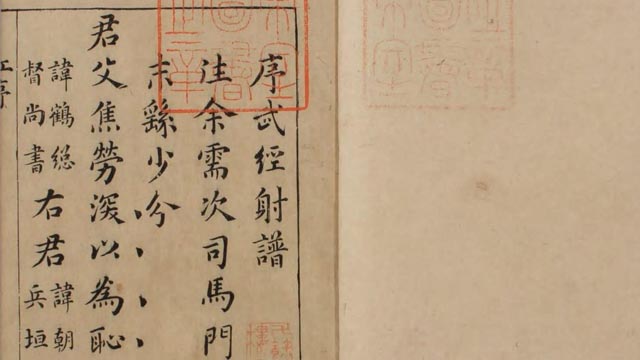 序武經射譜
往余需次司馬門
末繇少分、、、
君父焦勞深以為恥
諱鶴總
督尚書
右君
諱朝
兵垣